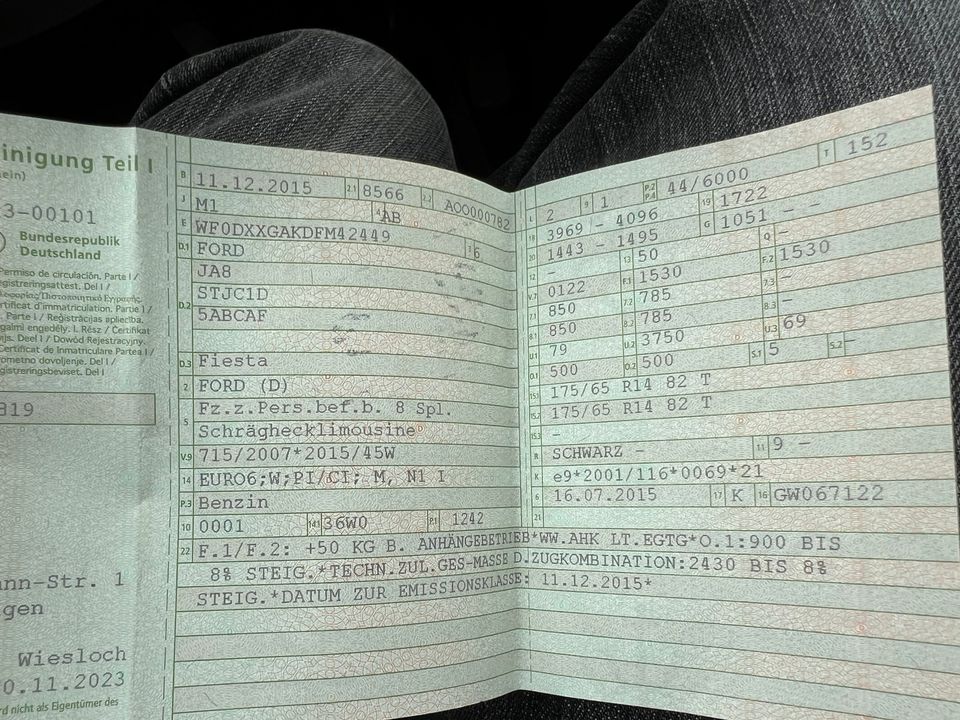 inigung Teil I
ein)
3-00101
Bundesrepublik
Deutschland
Permiso de circulación. Parte I /
Registreringsattest. Del I /
I. Rész / Certifikat
Deel I / Dowód Rejestracyjny.
Certificat de Inmatriculare Partea I /
Prometno dovoljenje. Del I /
Registreringsbeviset. Del I
819
nn-Str. 1
gen
Wiesloch
0.11.2023
rd nicht als Eigentümer des
B 11.12.2015 2.1 8566 2.2 AOO000782
J M1 4 AB
E WF0DXXGAKDFM42449 3 6
D.1 FORD
JA8
D.2 STJC1D
5ABCAF
D.3 Fiesta
2 FORD (D)
5 Fz.z.Pers.bef.b. 8 Spl.
Schräghecklimousine
V.9 715/2007*2015/45W
14 EURO6;W;PI/CI; M, N1 I
P.3 Benzin
10 0001 14.1 36W0 P.1 1242
L 2 9 1 P.2 P.4 44/6000 T 152
18 3969 - 4096 19 1722
20 1443 - 1495 G 1051 - -
12 - 13 50 Q -
V.7 0122 F.1 1530 F.2 1530
7.1 850 7.2 785 7.3 -
8.1 850 8.2 785 8.3 -
U.1 79 U.2 3750 U.3 69
O.1 500 O.2 500 S.1 5 S.2 -
15.1 175/65 R14 82 T
15.2 175/65 R14 82 T
15.3 -
R SCHWARZ - 11 9 -
K e9*2001/116*0069*21
6 16.07.2015 17 K 16 GW067122
21
22 F.1/F.2: +50 KG B. ANHÄNGEBETRIEB*WW.AHK LT.EGTG*O.1:900 BIS
8% STEIG.*TECHN.ZUL.GES-MASSE D.ZUGKOMBINATION:2430 BIS 8%
STEIG.*DATUM ZUR EMISSIONSKLASSE: 11.12.2015*